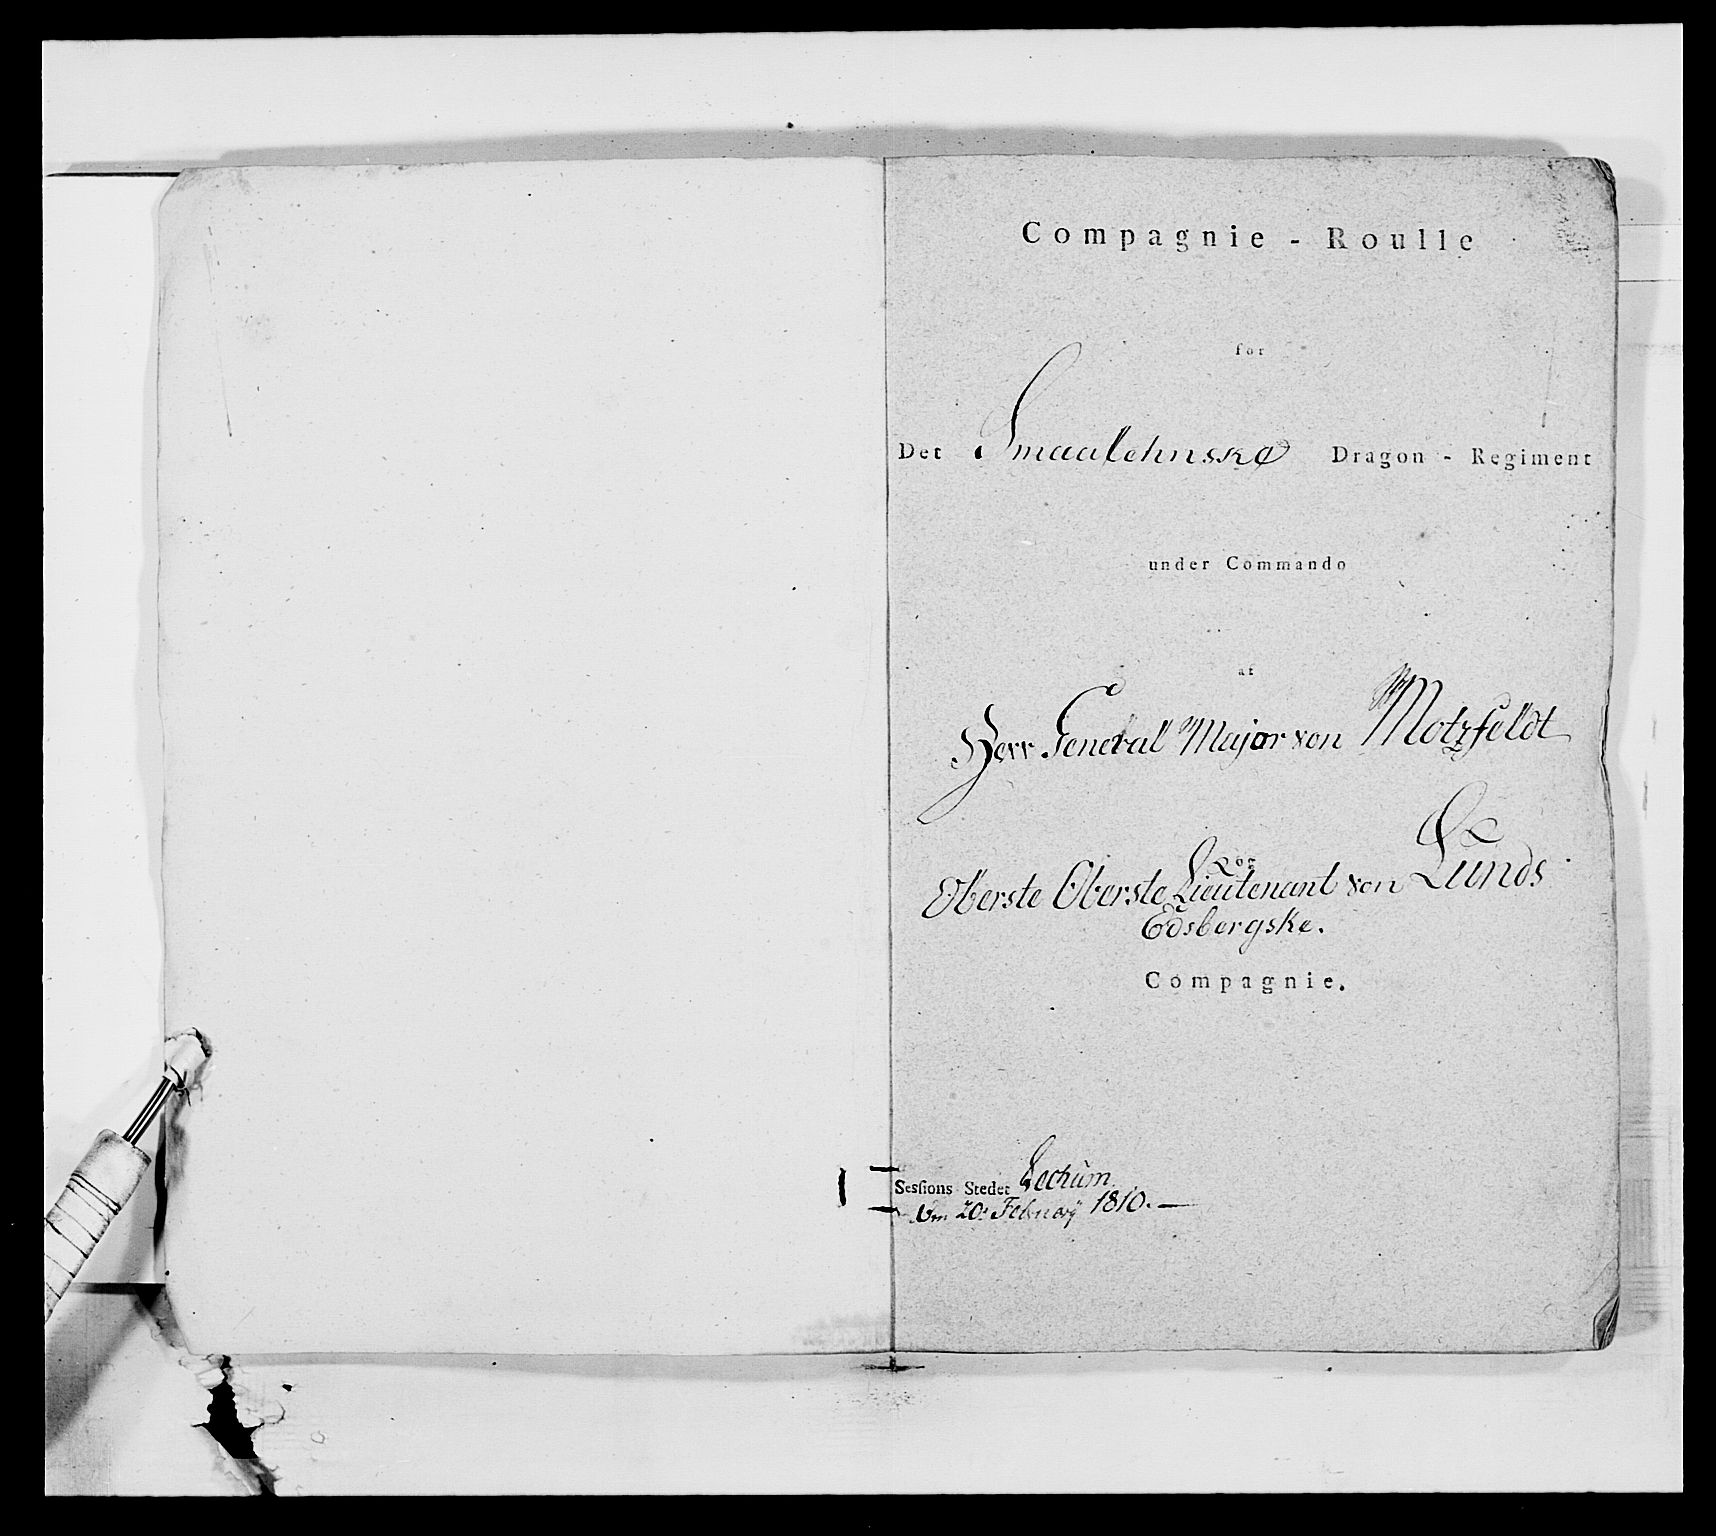 Compagnie - Roulle
for
Det Smaalehnske Dragon - Regiment
under Commando
af
Herr General Major von Motzfeldt
Oberste Oberste Lieutenant von Lunds
Edsbergske.
Compagnie.
Sessions Stedet
20: February 1810. —